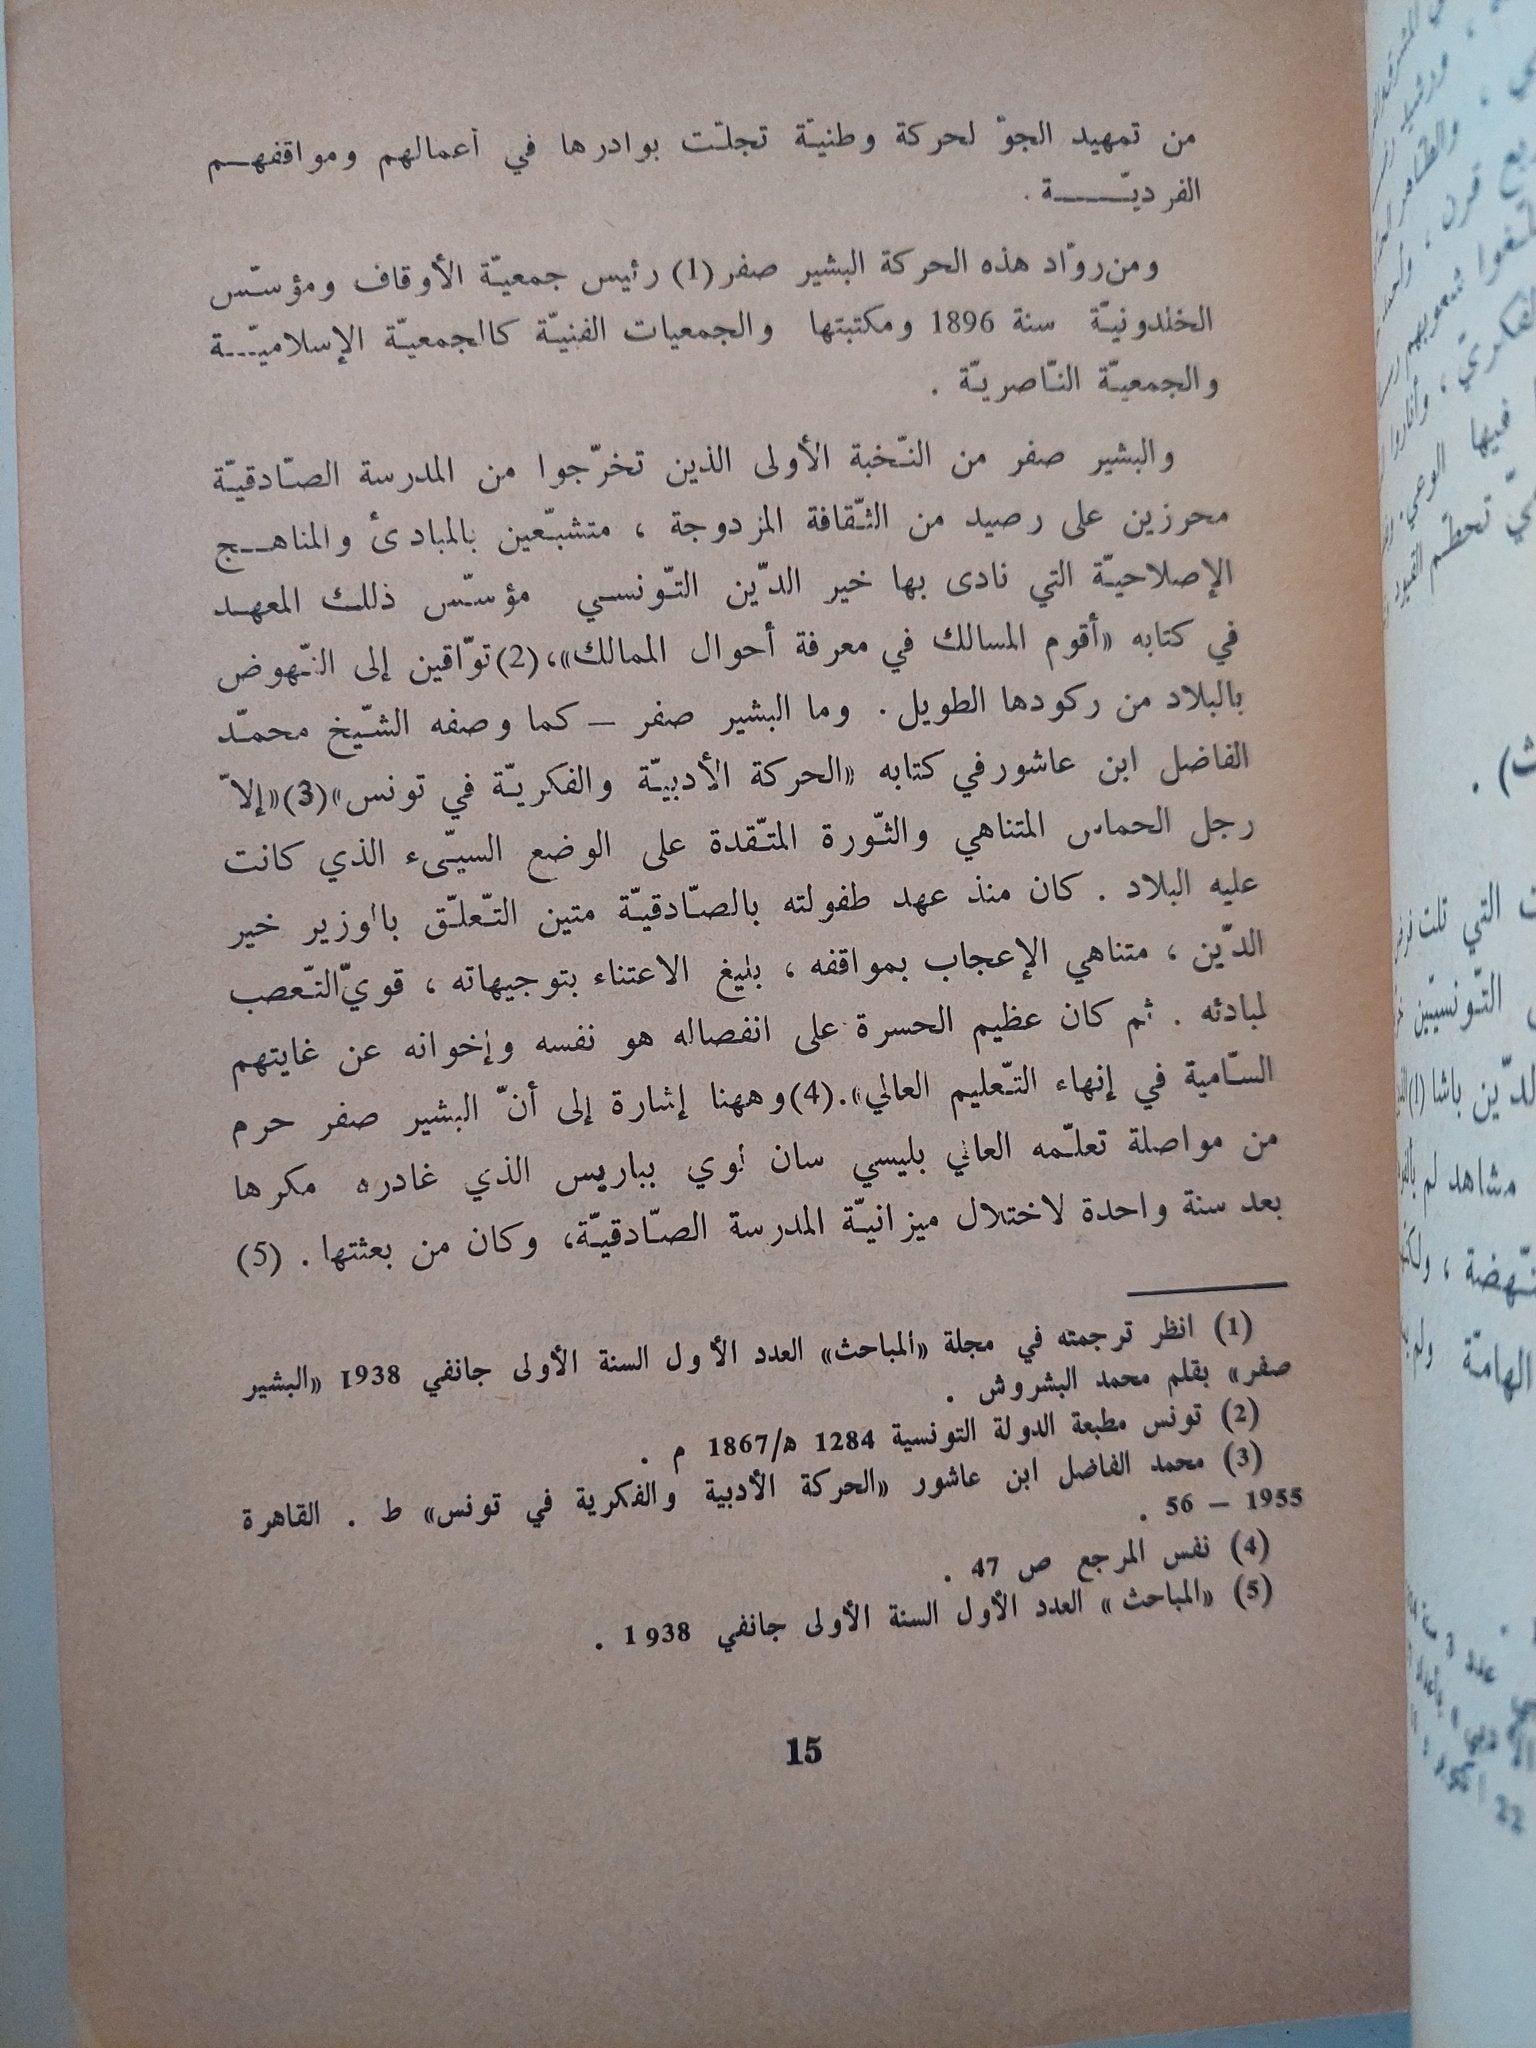 من تمهيد الجوّ لحركة وطنيّة تجلّت بوادرها في أعمالهم ومواقفهـــم
الفرديّــــــة .
ومن روّاد هذه الحركة البشير صفر (1) رئيس جمعيّة الأوقاف ومؤسّس
الخلدونيّة سنة 1896 ومكتبتها والجمعيات الفنيّة كالجمعيّة الإسلاميّـــة
والجمعيّة النّاصريّة .
والبشير صفر من النّخبة الأولى الذين تخرّجوا من المدرسة الصّادقيّة
محرزين على رصيد من الثّقافة المزدوجة ، متشبّعين بالمبادئ والمناهـــج
الإصلاحيّة التي نادى بها خير الدّين التّونسي مؤسّس ذلك المعهـد
في كتابه «أقوم المسالك في معرفة أحوال الممالك»، (2) توّاقين إلى النّهوض
بالبلاد من ركودها الطويل . وما البشير صفر – كما وصفه الشّيخ محمّد
الفاضل ابن عاشور في كتابه «الحركة الأدبيّة والفكريّة في تونس» (3) «إلاّ
رجل الحماس المتناهي والثّورة المتّقدة على الوضع السيّىء الذي كانت
عليه البلاد . كان منذ عهد طفولته بالصّادقيّة متين التّعلّق بالوزير خير
الدّين ، متناهي الإعجاب بمواقفه ، بليغ الاعتناء بتوجيهاته ، قويّ التّعصب
لمبادئه . ثم كان عظيم الحسرة على انفصاله هو نفسه وإخوانه عن غايتهم
السّامية في إنهاء التّعليم العالي». (4) وههنا إشارة إلى أنّ البشير صفر حرم
من مواصلة تعلّمه العالي بليسي سان لوي بباريس الذي غادره مكرها
بعد سنة واحدة لاختلال ميزانيّة المدرسة الصّادقيّة، وكان من بعثتها . (5)
(1) انظر ترجمته في مجلة «المباحث» العدد الأول السنة الأولى جانفي 1938 «البشير
صفر» بقلم محمد البشروش .
(2) تونس مطبعة الدولة التونسية 1284 ه/1867 م .
(3) محمد الفاضل ابن عاشور «الحركة الأدبية والفكرية في تونس» ط . القاهرة
1955 – 56 .
(4) نفس المرجع ص 47 .
(5) «المباحث» العدد الأول السنة الأولى جانفي 1938 .
15